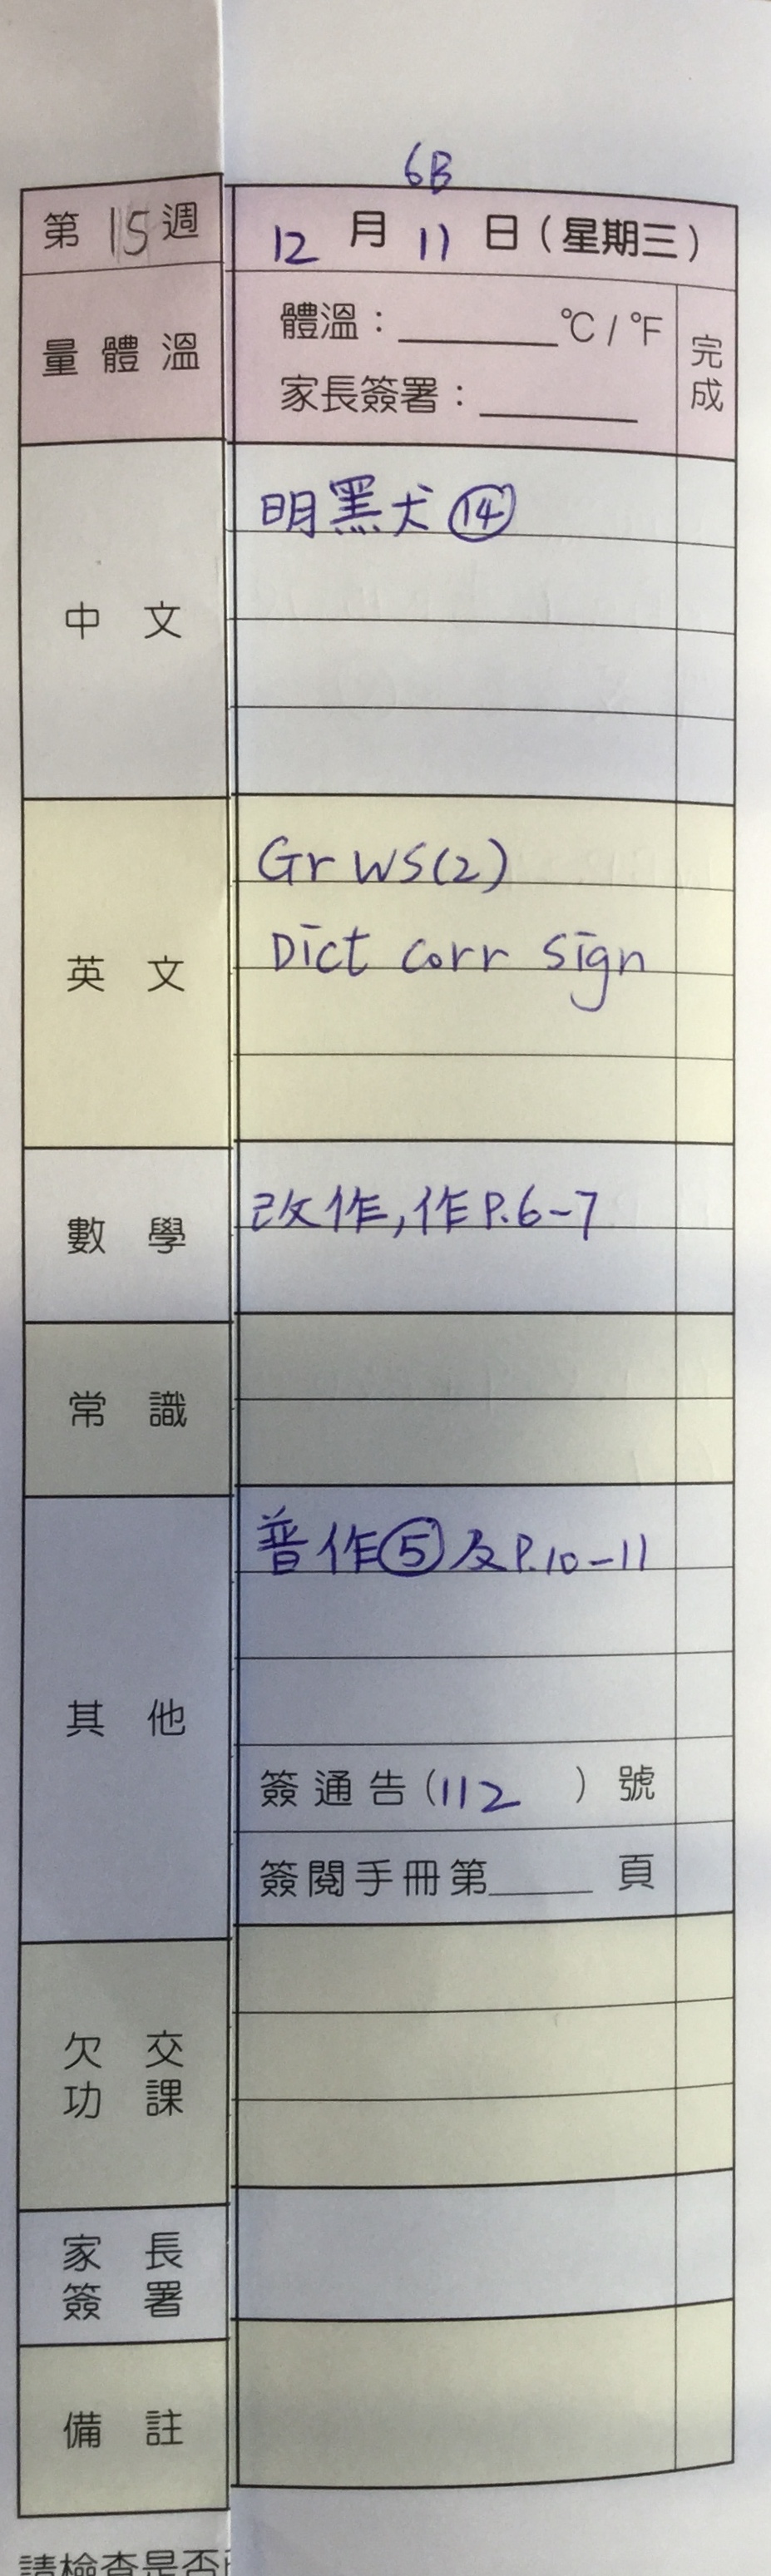 6B
第15週
12月11日(星期三)
量體溫
體溫：______°C / °F
家長簽署：______
完成
中文
明黑犬⑭
英文
Gr WS(2)
Dict corr sign
數學
改作,作P.6-7
常識
其他
普作⑤及P.10-11
簽通告(112 )號
簽閱手冊第____頁
欠交
功課
家長
簽署
備註
請檢查是否